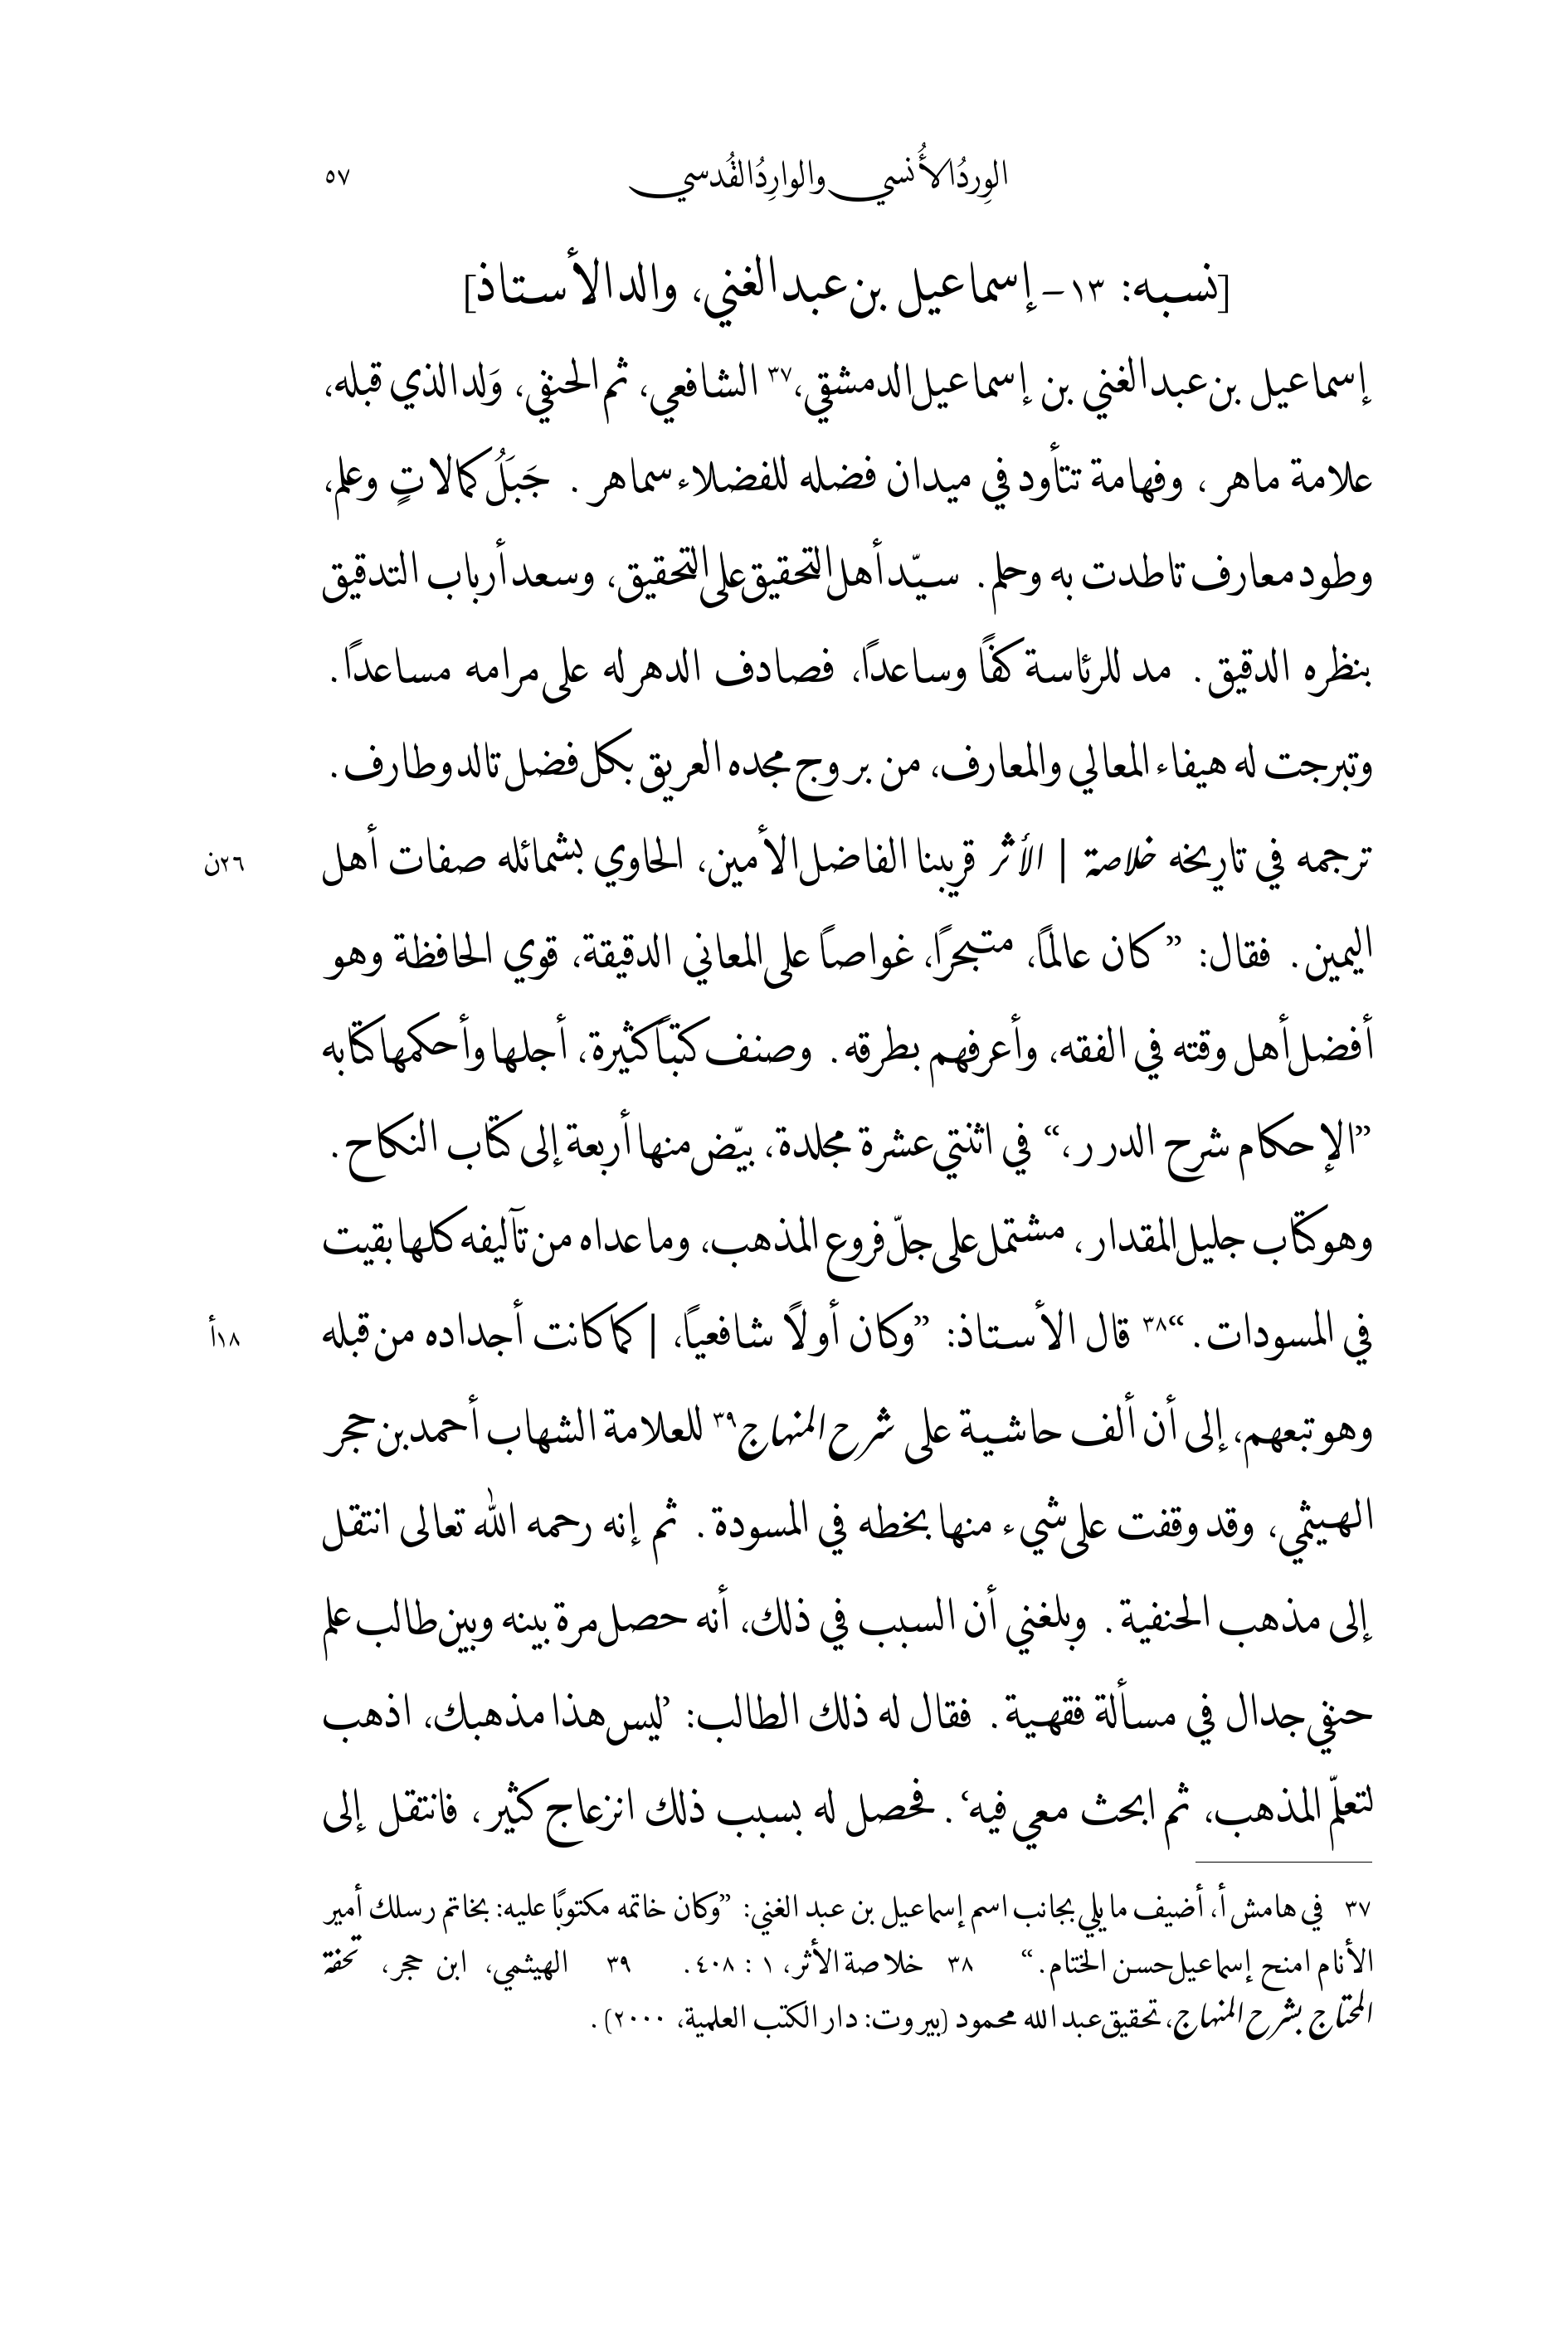 الوِردُ الأُنسي والوارِدُ القُدسي ٥٧
[نسبه: ١٣– إسماعيل بن عبد الغني، والد الأستاذ]
إسماعيل بن عبد الغني بن إسماعيل الدمشقي،٣٧ الشافعي، ثم الحنفي، وَلد الذي قبله،
علامة ماهر، وفهامة تتأود في ميدان فضله للفضلاء سماهر. جَبَلُ كمالاتٍ وعلم،
وطود معارف تاطدت به وحلم. سيّد أهل التحقيق على التحقيق، وسعد أرباب التدقيق
بنظره الدقيق. مد للرئاسة كفًا وساعدًا، فصادف الدهر له على مرامه مساعدًا.
وتبرجت له هيفاء المعالي والمعارف، من بروج مجده العريق بكل فضل تالد وطارف.
ترجمه في تاريخه خلاصة | الأثر قريبنا الفاضل الأمين، الحاوي بشمائله صفات أهل ٢٦ن
اليمين. فقال: ”كان عالمًا، متبحرًا، غواصاً على المعاني الدقيقة، قوي الحافظة وهو
أفضل أهل وقته في الفقه، وأعرفهم بطرقه. وصنف كتباً كثيرة، أجلها وأحكمها كتابه
”الإحكام شرح الدرر،“ في اثنتي عشرة مجلدة، بيّض منها أربعة إلى كتاب النكاح.
وهو كتاب جليل المقدار، مشتمل على جلّ فروع المذهب، وما عداه من تآليفه كلها بقيت
في المسودات.“٣٨ قال الأستاذ: ”وكان أولًا شافعياً، | كما كانت أجداده من قبله ١٨أ
وهو تبعهم، إلى أن ألف حاشية على شرح المنهاج٣٩ للعلامة الشهاب أحمد بن حجر
الهيثمي، وقد وقفت على شيء منها بخطه في المسودة. ثم إنه رحمه الله تعالى انتقل
إلى مذهب الحنفية. وبلغني أن السبب في ذلك، أنه حصل مرة بينه وبين طالب علم
حنفي جدال في مسألة فقهية. فقال له ذلك الطالب: ’ليس هذا مذهبك، اذهب
لتعلّم المذهب، ثم ابحث معي فيه‘. فحصل له بسبب ذلك انزعاج كثير، فانتقل إلى
٣٧ في هامش أ، أضيف ما يلي بجانب اسم إسماعيل بن عبد الغني: ”وكان خاتمه مكتوبًا عليه: بخاتم رسلك أمير
الأنام امنح إسماعيل حسن الختام.“ ٣٨ خلاصة الأثر، ١ : ٤٠٨. ٣٩ الهيثمي، ابن حجر، تحفة
المحتاج بشرح المنهاج، تحقيق عبد الله محمود (بيروت: دار الكتب العلمية، ٢٠٠٠).